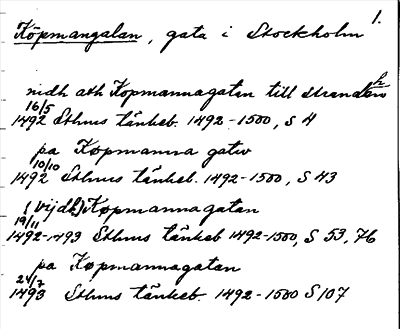 1.
Köpmangatan, gata i Stockholm
nidh ath Köpmannagaten till stranden
16/5
1492 Sthms tänkeb. 1492-1500, S 4
pa Köpmanna gatw
10/10
1492 Sthms tänkeb. 1492-1500, S 43
(vijdh) Köpmannagatan
19/11
1492-1493 Sthms tänkeb 1492-1500, S 53, 76
pa Köpmannagatan
24/7
1493 Sthms tänkeb. 1492-1500 S 107